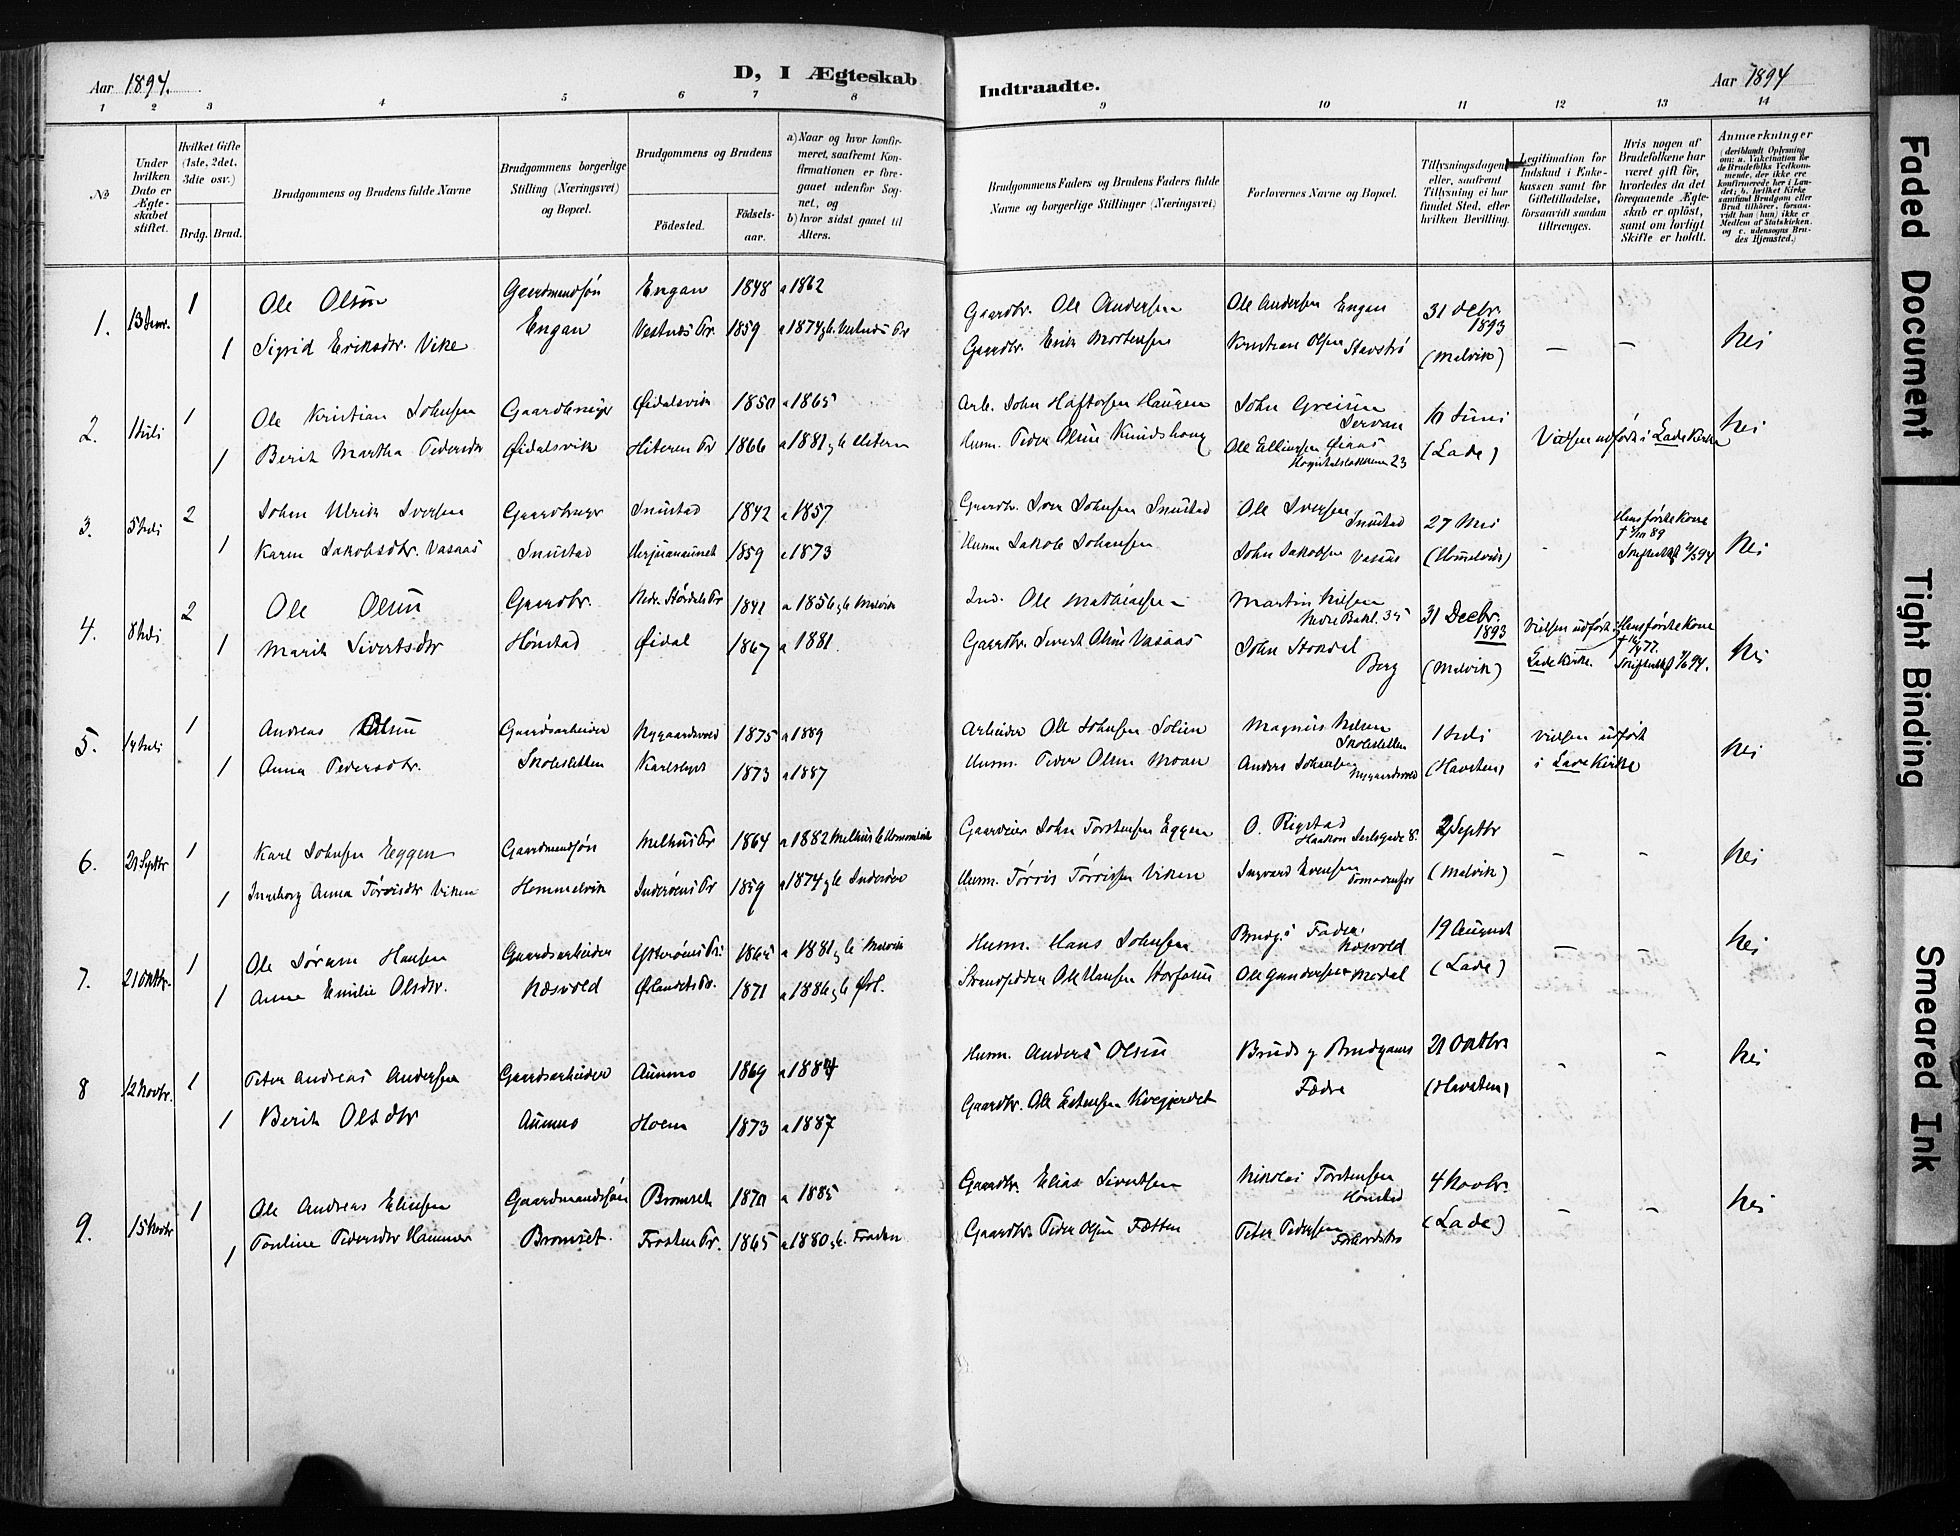 Aar 1894.
D, I Ægteskab
Indtraadte.
Aar 1894
1 2 3 4 5 6 7 8 9 10 11 12 13 14
No
Under hvilken Dato er Ægteskabet stiftet.
Hvilket Gifte (1ste, 2det, 3die osv.)
Brdg. Brud.
Brudgommens og Brudens fulde Navne
Brudgommens borgerlige Stilling (Næringsvei) og Bopæl.
Brudgommens og Brudens
Födested.
Födselsaar.
a) Naar og hvor konfirmeret, saafremt Konfirmationen er foregaaet udenfor Sognet, og
b) hvor sidst gaaet til Alters.
Brudgommens Faders og Brudens Faders fulde Navne og borgerlige Stillinger (Næringsvei)
Forlovernes Navne og Bopæl.
Tillysningsdagen eller, saafremt Tillysning ei har fundet Sted, efter hvilken Bevilling.
Legitimation for Indskud i Enkekassen samt for Giftetilladelse, forsaavidt saadan tiltrænges.
Hvis nogen af Brudefolkene har været gift för, hvorledes da det foregaaende Ægteskab er oplöst, samt om lovligt Skifte er holdt.
Anmærkninger
(deriblandt Oplysning om: a. Vakcination for de Brudefolks Vedkommende, der ikke ere konfirmerede her i Landet; b. hvilket Kirkesamfund Brudgom eller Brud tilhörer, forsaavidt han (hun) ikke er Medlem af Statskirken, og c. udensogns Brudes Hjemsted.)
1. 13 Janr. 1 Ole Olsen Gaardmandsøn Engan 1848 a 1862 Gaardbr. Ole Andersen Ole Andersen Engan 31 Decbr. 1893
1 Sigrid Eriksdtr. Vike Engan Vestnæs Pr. 1859 a 1874 Gaardbr. Erik Mortensen Kristian Olsen (Malvik) – – Nei
2. 1 Juli 1 Ole Kristian Johnsen Øidalsvik 1850 a 1865 Arb. John Haftorsen Haugen John 10 Juni Nei
1 Berit Martha Pedersdtr Øidalsvik Hiteren Pr 1866 a 1881 b Hiteren Husm. Peder Olsen Ole Ellingsen Øiaas (Lade) Vielsen udført i Lade Kirke
3. 5 Juli 2 Johan Ulrik Iversen Snustad 1842 a 1857 Gaardbr. Iver Johnsen Snustad Ole Iversen Snustad 27 Mai Hans første Kone
1 Karen Jakobsdtr. Vasaas Snustad 1859 a 1873 Husm. Jakob Johansen John Jakobsen Vasaas (Hommelvik) – Nei
4. 8 Juli 2 Ole Olsen Gaardbr. Nedr. Størdals Pr 1841 a 1856 b Malvik Ind. Ole Mathiasen Martin Nilsen 31 Decbr. 1893 Vielsen udført i Hans første Kone
1 Marit Sivertsdtr Hønstad Øidal 1867 a 1881 Gaardbr. Sivert Olsen Vasaas John Stordal Berg (Malvik) Lade Kirke. Nei
5. 14 Juli 1 Andreas Olsen Gaardsarbeider Nygaardsvold 1875 a 1889 Arbeider Ole Johnsen Solien Magnus Nilsen 1 Juli Vielsen udført
1 Anna Pedersdtr. Karlslyst 1873 a 1887 Husm. Peder Olsen Moan Anders Johansen Nygaardsvold (Havsten) i Lade Kirke Nei
6. 21 Septbr 1 Karl Johnsen Eggen Gaardmandsøn Melhus Pr 1864 a 1882 Melhus b Hommelvik Gaardeier John Torstensen Eggen O. Rigstad Haakon Jarlsgade 8. 2 Septbr
1 Ingeborg Anna Tørrisdtr Viken Hommelvik Inderøens Pr 1859 a 1874 b Inderøen Husm. Tørris Tørrissen Viken Ingvard Evensen (Malvik) – – Nei
7. 21 Oktbr. 1 Ole Sørum Hansen Gaardsarbeider Ytterøens Pr. 1865 a 1881 b Malvik Husm. Hans Johnsen Brudgs Fader Næsvold 19 August – – Nei
1 Anna Emilie Olsdtr. Næsvold Ørlandets Pr. 1871 a 1886 b Ørl. Strandsidder Ole Hansen Ole Gundersen Mordal (Lade)
8 12 Novbr. 1 Peter Andreas Andersen Gaardsarbeider Aunmo 1869 a 1884 Husm. Anders Olsen Bruds og Brudgoms 21 Oktbr – – Nei
1 Berit Olsdtr Aunmo Hoem 1873 a 1887 Gaardbr. Ole Estensen Kvegjerdet Fædre (Havsten)
9. 15 Novbr 1 Ole Andreas Eliesen Gaardmandssøn Bromset 1870 a 1885 Gaardbr. Elias Sivertsen Nikolai Torstensen Hønstad 4 Novbr. – – Nei
1 Pauline Pedersdtr Hammer Bromset. Frosten Pr. 1865 a 1880 b. Frosten Gaardbr. Peder Olsen Fætten Peter Pedersen (Lade)
Faded Document
Tight Binding
Smeared Ink